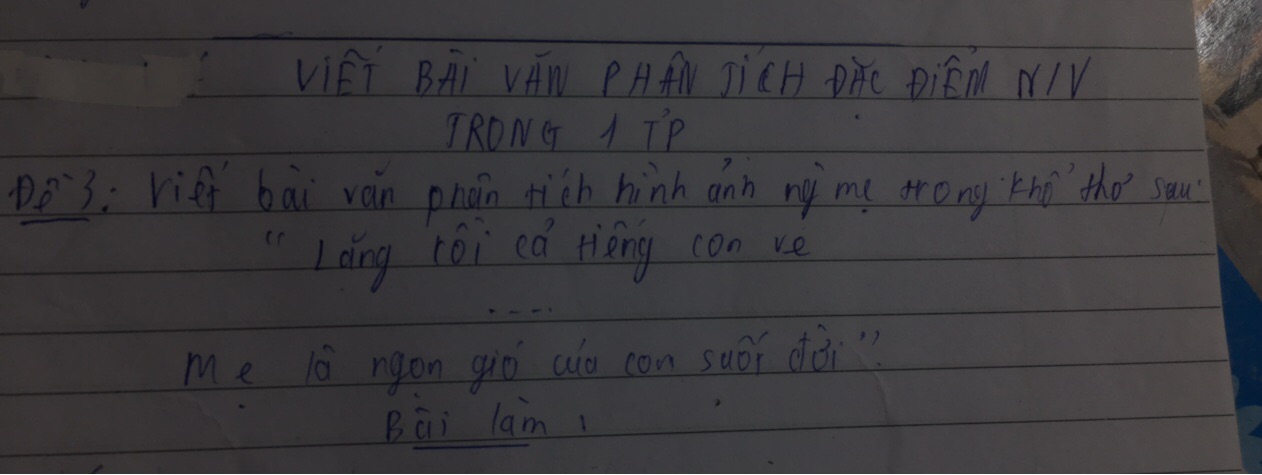 VIẾT BÀI VĂN PHÂN TÍCH ĐẶC ĐIỂM N/V
TRONG 1 TP
Đề 3: Viết bài văn phân tích hình ảnh ng` mẹ trong khổ thơ sau:
"Lặng rồi cả tiếng con ve
.....
Mẹ là ngọn gió của con suốt đời".
Bài làm: